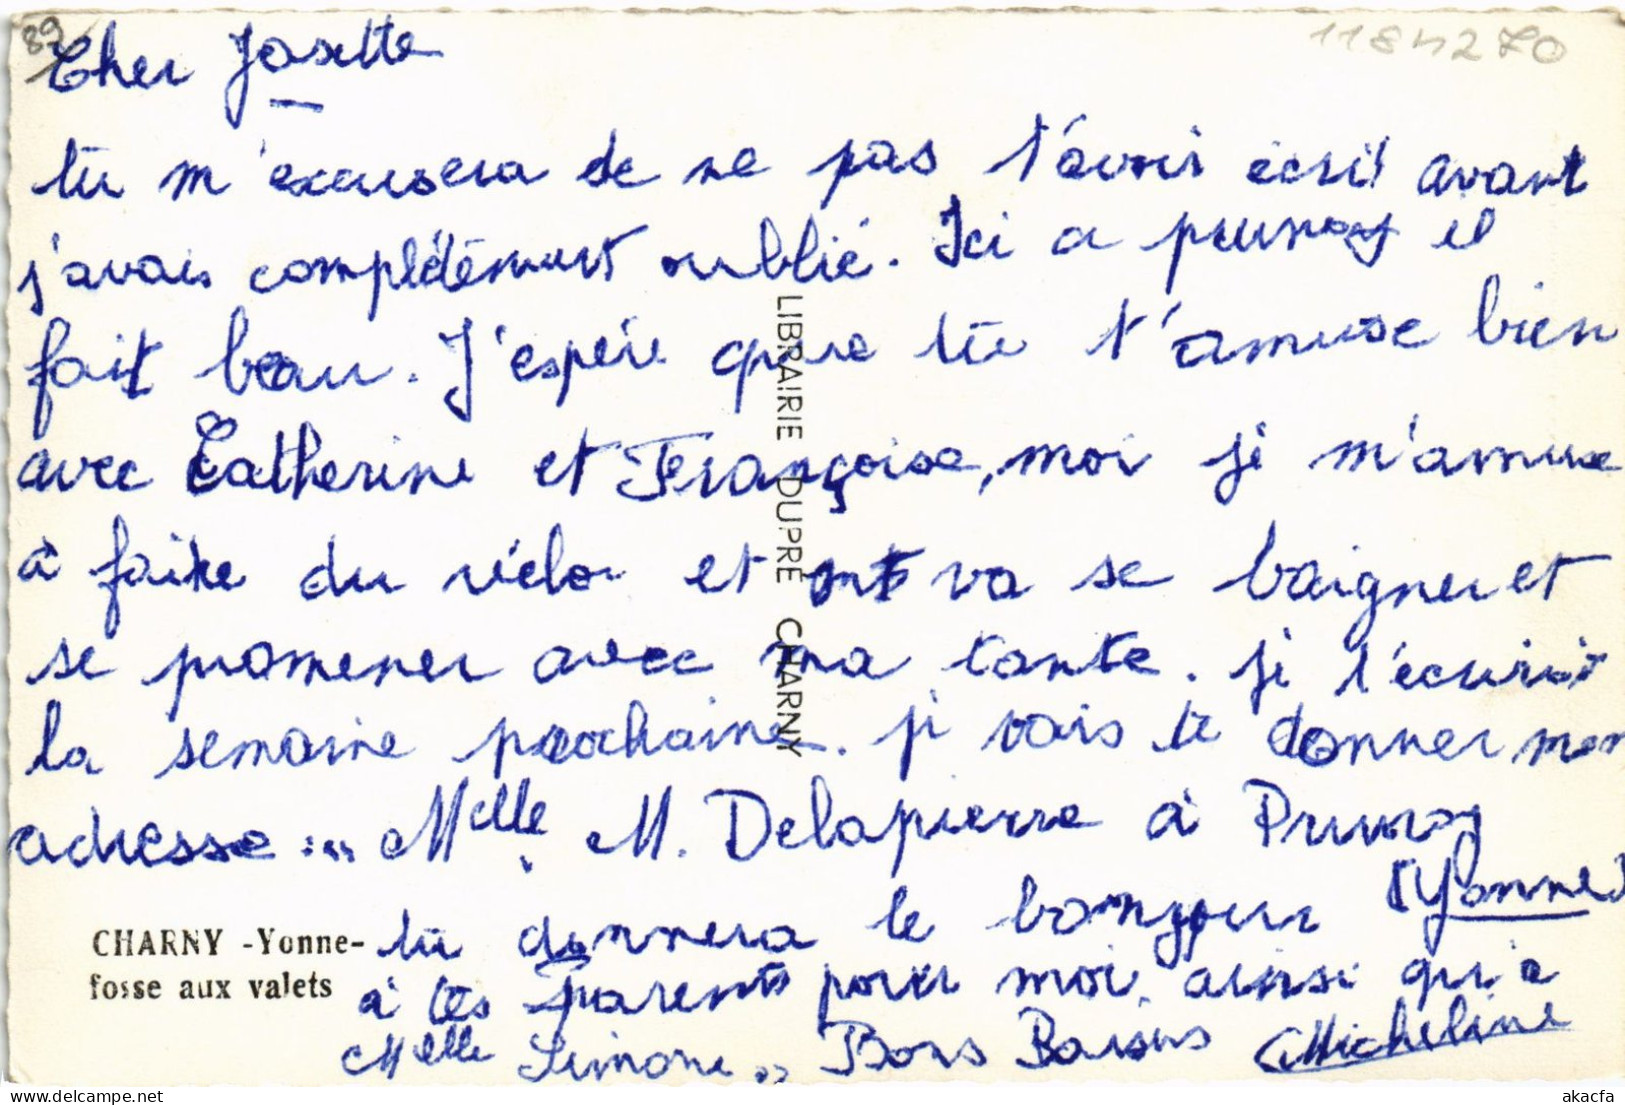 89
1184270
Cher Josette
tu m'excusera de ne pas t'avoir écrit avant
j'avais complétement oublié. Ici a prunoy il
fait beau. J'espére que tu t'amuse bien
avec Catherine et Françoise, moi je m'amuse
à faire du vélo et on va se baigner et
se promener avec ma tante. je t'écuririt
la semaine prochaine. je vais te donner mon
adresse : Melle M. Delapierre à Prunoy
(Yonne)
tu donnera le bonjour
à tes parents pour moi, ainsi qu'a
Melle Simone. Bons Baisers Micheline
CHARNY -Yonne-
fosse aux valets
LIBRAIRIE DUPRÉ CHARNY
akacfa
www.delcampe.net